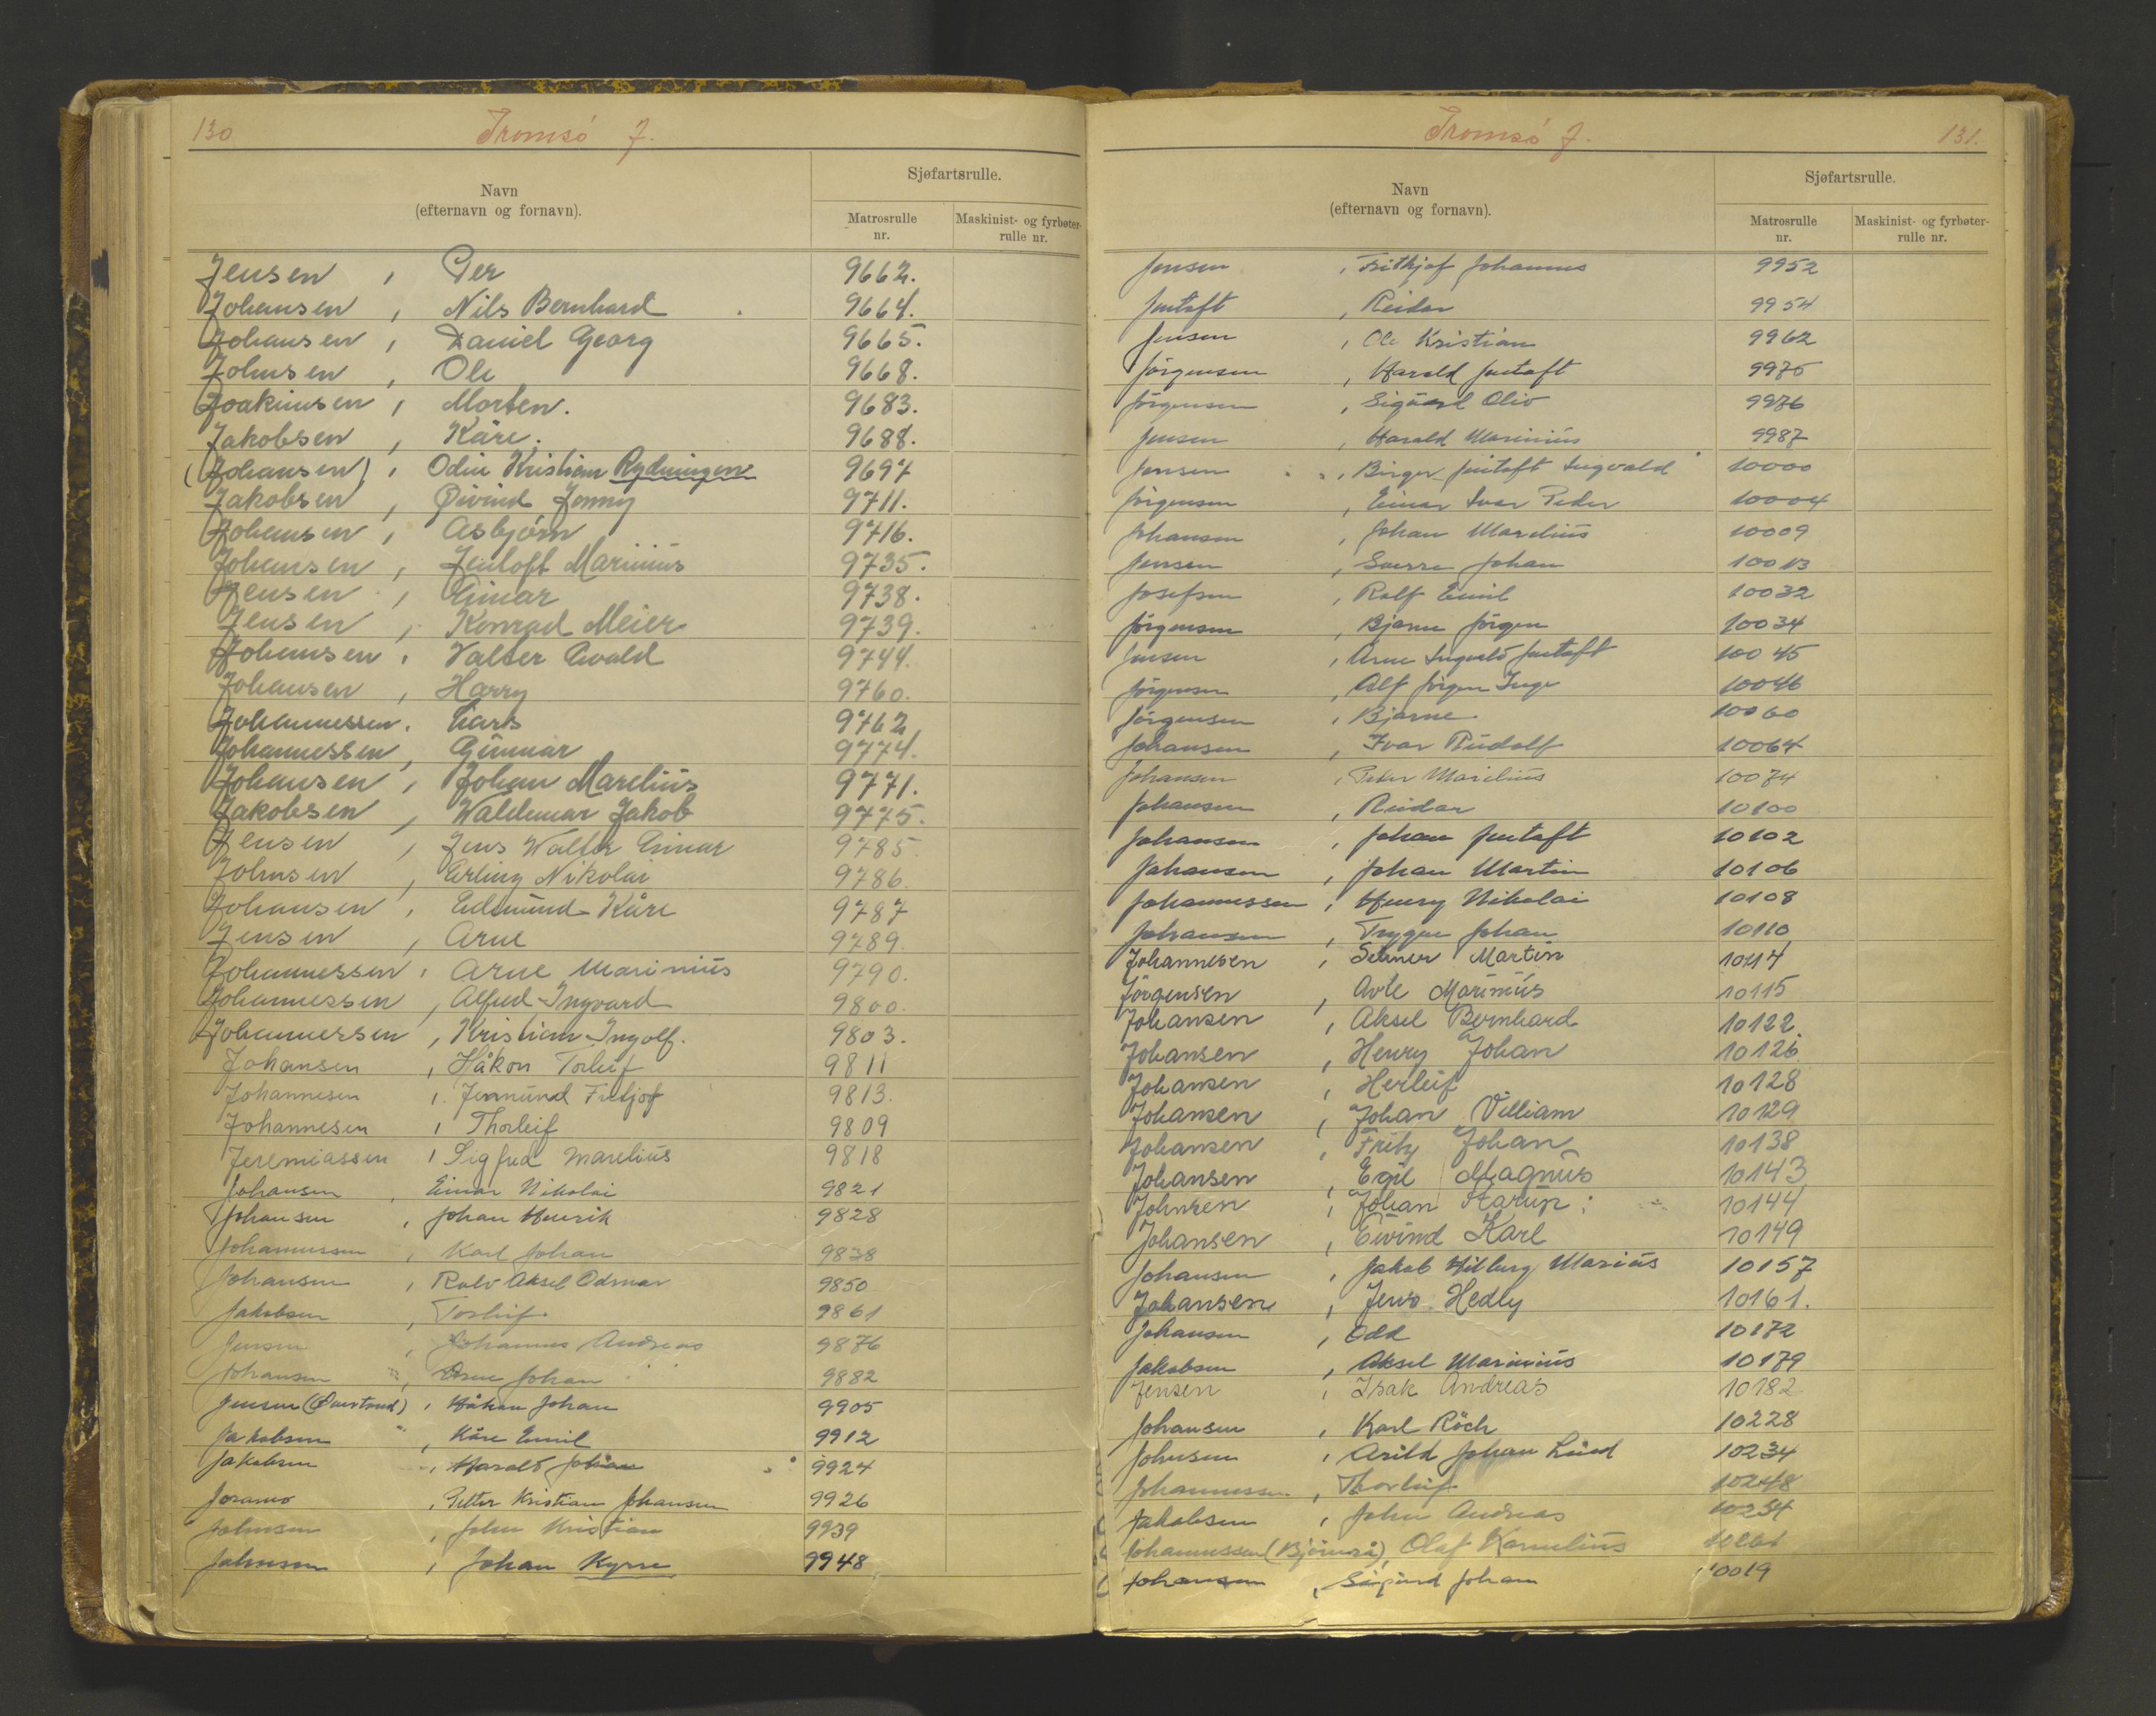 130 Tromsö J.
Navn
(efternavn og fornavn).
Sjøfartsrulle.
Matrosrulle nr.
Maskinist- og fyrbøter-rulle nr.
Jensen, Per 9662.
Johansen, Nils Bernhard 9664.
Johansen, Daniel Georg 9665.
Johnsen, Ole 9668.
Joakimsen, Morten. 9683.
Jakobsen, Kåre. 9688.
(Johansen), Odin Kristian Rydningen 9697
Jakobsen, Øivind Jenny 9711.
Johansen, Asbjörn 9716.
Johansen, Jentoft Marinius 9735.
Jensen, Einar 9738.
Jensen, Konrad Meier 9739.
Johansen, Valter Evald 9744.
Johansen, Harry 9760.
Johannessen. Lars 9762
Johannessen, Gunnar 9774.
Johansen, Johan Marelius 9771.
Jakobsen, Waldemar Jakob 9775.
Jensen, Jens Walter Einar 9785.
Johnsen, Erling Nikolai 9786.
Johansen, Edmund Kåre 9787
Jensen, Arne 9789.
Johannessen, Arne Marinius 9790.
Johannessen, Alfred Ingvard 9800.
Johannessen, Kristian Ingolf. 9803.
Johansen, Håkon Torleif 9811
Johannesen, Jermund Fritjof 9813.
Johannesen, Thorleif 9809
Jeremiassen, Sigfred Marelius 9818
Johansen, Einar Nikolai 9821
Johansen, Johan Henrik 9828
Johannessen, Karl Johan 9838
Johansen, Ralv Aksel Odmar 9850
Jakobsen, Torleif 9861
Jensen, Johannes Andreas 9876
Johansen, Arne Johan 9882
Jensen, Håkon Johan 9905
Jakobsen, Kåre Emil 9912
Jakobsen, Harald Johan 9924
Joramo, Petter Kristian Johansen 9926
Johnsen, John Kristian 9939
Johnsen, Johan Kyrre 9948
Tromsö J. 131.
Navn
(efternavn og fornavn).
Sjøfartsrulle.
Matrosrulle nr.
Maskinist- og fyrbøter-rulle nr.
Jensen, Frithjof Johannes 9952
Jentoft, Reidar 9954
Jensen, Ole Kristian 9962
Jörgensen, Harald Jentoft 9975
Jörgensen, Sigvard Oliv 9976
Jensen, Harald Marinius 9987
Jensen, Birger Jentoft Ingvald 10000
Jörgensen, Einar Ivar Peder 10004
Johansen, Johan Marelius 10009
Jensen, Sverre Johan 10013
Josefsen, Rolf Emil 10032
Jörgensen, Bjarne Jörgen 10034
Jensen, Arne Ingvald Jentoft 10045
Jörgensen, Alf Jörgen Inge 10046
Jörgensen, Bjarne 10060
Johansen, Ivar Rudolf 10064
Johansen, Peter Marelius 10074
Johansen, Reidar 10100
Johansen, Johan Jentoft 10102
Johansen, Johan Martin 10106
Johannessen, Henry Nikolai 10108
Johansen, Trygve Johan 10110
Johannesen, Selmer Martin 10114
Jörgensen, Marinius 10115
Johansen, Aksel Bernhard 10122.
Johansen, Henry Johan 10126
Johansen, Herleif 10128
Johansen, Johan Villiam 10129
Johansen, Fritz Johan 10138
Johansen, Egil Magnus 10143
Johnsen, Johan 10144
Johansen, Eivind Karl 10149
Johansen, Jakob Hilberg Marius 10157
Johansen, Jens Hedly 10161.
Johansen, Odd 10172
Jakobsen, Aksel Marinius 10179
Jensen, Isak Andreas 10182
Johansen, Karl Röch 10228
Johnsen, Arild Johan Lund 10234
Johannessen, Thorleif 10248
Jakobsen, John Andreas 10254
Johannessen (Bjömrå), Olaf Kornelius 10261
Johansen, Sigurd Johan 10019